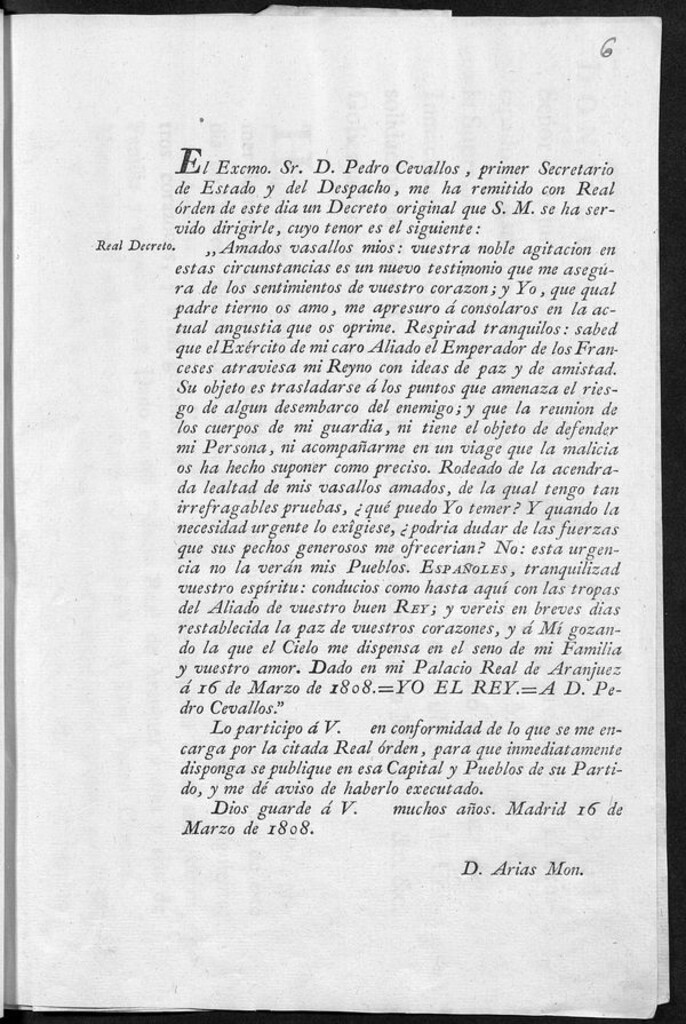 6
El Excmo. Sr. D. Pedro Cevallos, primer Secretario
de Estado y del Despacho, me ha remitido con Real
órden de este dia un Decreto original que S. M. se ha ser-
vido dirigirle, cuyo tenor es el siguiente:
Real Decreto. „Amados vasallos mios: vuestra noble agitacion en
estas circunstancias es un nuevo testimonio que me asegú-
ra de los sentimientos de vuestro corazon; y Yo, que qual
padre tierno os amo, me apresuro á consolaros en la ac-
tual angustia que os oprime. Respirad tranquilos: sabed
que el Exército de mi caro Aliado el Emperador de los Fran-
ceses atraviesa mi Reyno con ideas de paz y de amistad.
Su objeto es trasladarse á los puntos que amenaza el ries-
go de algun desembarco del enemigo; y que la reunion de
los cuerpos de mi guardia, ni tiene el objeto de defender
mi Persona, ni acompañarme en un viage que la malicia
os ha hecho suponer como preciso. Rodeado de la acendra-
da lealtad de mis vasallos amados, de la qual tengo tan
irrefragables pruebas, ¿qué puedo Yo temer? Y quando la
necesidad urgente lo exîgiese, ¿podria dudar de las fuerzas
que sus pechos generosos me ofrecerian? No: esta urgen-
cia no la verán mis Pueblos. ESPAÑOLES, tranquilizad
vuestro espíritu: conducios como hasta aquí con las tropas
del Aliado de vuestro buen REY; y vereis en breves dias
restablecida la paz de vuestros corazones, y á Mí gozan-
do la que el Cielo me dispensa en el seno de mi Familia
y vuestro amor. Dado en mi Palacio Real de Aranjuez
á 16 de Marzo de 1808.=YO EL REY.=A D. Pe-
dro Cevallos.”
Lo participo á V. en conformidad de lo que se me en-
carga por la citada Real órden, para que inmediatamente
disponga se publique en esa Capital y Pueblos de su Parti-
do, y me dé aviso de haberlo executado.
Dios guarde á V. muchos años. Madrid 16 de
Marzo de 1808.
D. Arias Mon.